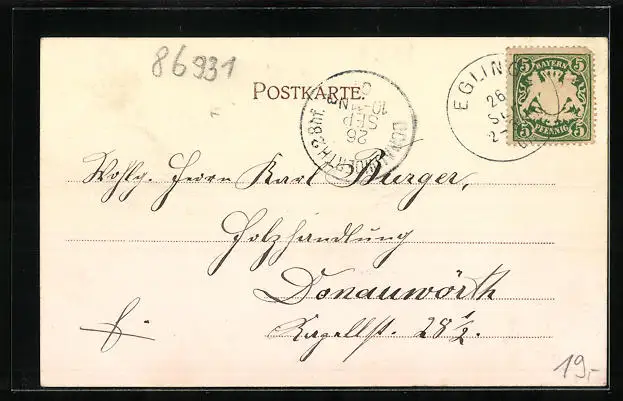 86931
POSTKARTE.
EGLING
26
SEP
BAYERN
5 5
PFENNIG
26
SEP
10-11
Wohlg. Herrn Karl Burger,
Holzhandlung
Donauwörth
Kapellst. 28½.
19,-